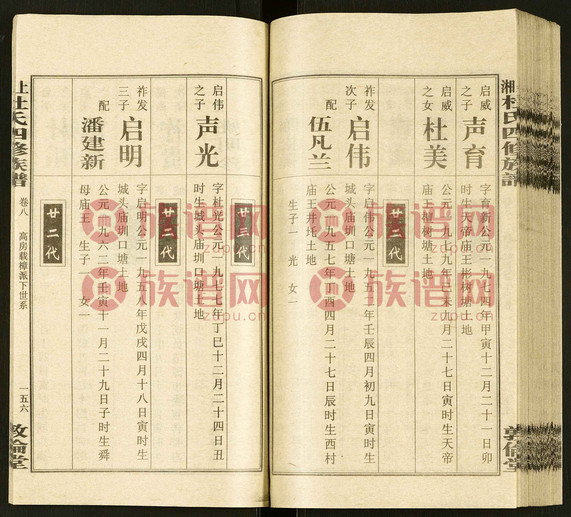 湘
杜氏四修族譜
敦倫堂
启威
之子
声育
字育新公元一九七四年甲寅十二月二十一日卯
时生天帝庙王彬树塘土地
启威
之女
杜美
公元一九七九年己未九月二十七日寅时生天帝
庙王檀树塘土地
廿二代
祚发
次子
启伟
字启伟公元一九五二年壬辰四月初九日寅时生
城头庙圳口塘土地
配
伍凡兰
公元一九五七年丁酉四月二十七日辰时生西村
庙王井坵土地
生子一 光 女一
廿三代
启伟
之子
声光
字杜光公元一九七七年丁巳十二月二十四日丑
时生城头庙圳口塘土地
廿二代
祚发
三子
启明
字启明公元一九五八年戊戌四月十八日寅时生
城头庙圳口塘土地
配
潘建新
公元一九六二年壬寅十一月二十九日子时生舜
母庙王 生子一 女一
廿二代
上
杜氏四修族譜
卷八
高房载樟派下世系
一五六
敦倫堂
族谱网
zupu.cn
族谱网
zupu.cn
族谱网
zupu.cn
族谱网
zupu.cn